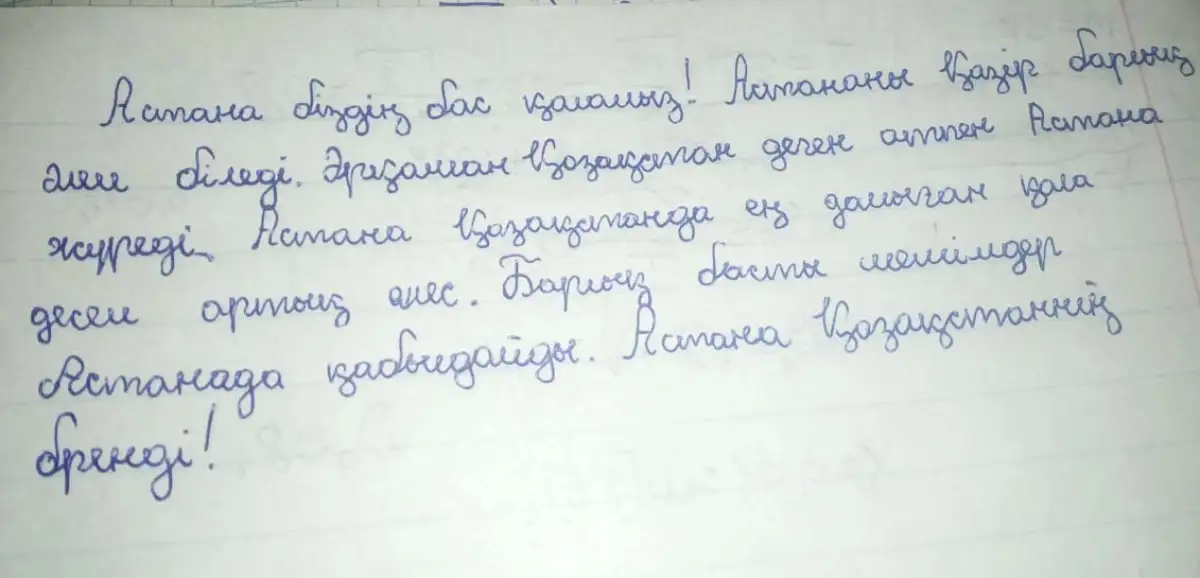 Астана біздің бас қаламыз! Астананы Қазір барлық
әлем біледі. Әрқашан Қазақстан деген атпен Астана
жүреді. Астана Қазақстанда ең дамыған қала
десем артық емес. Барлық басты шешімдер
Астанада қабылдайды. Астана Қазақстанның
бренді!